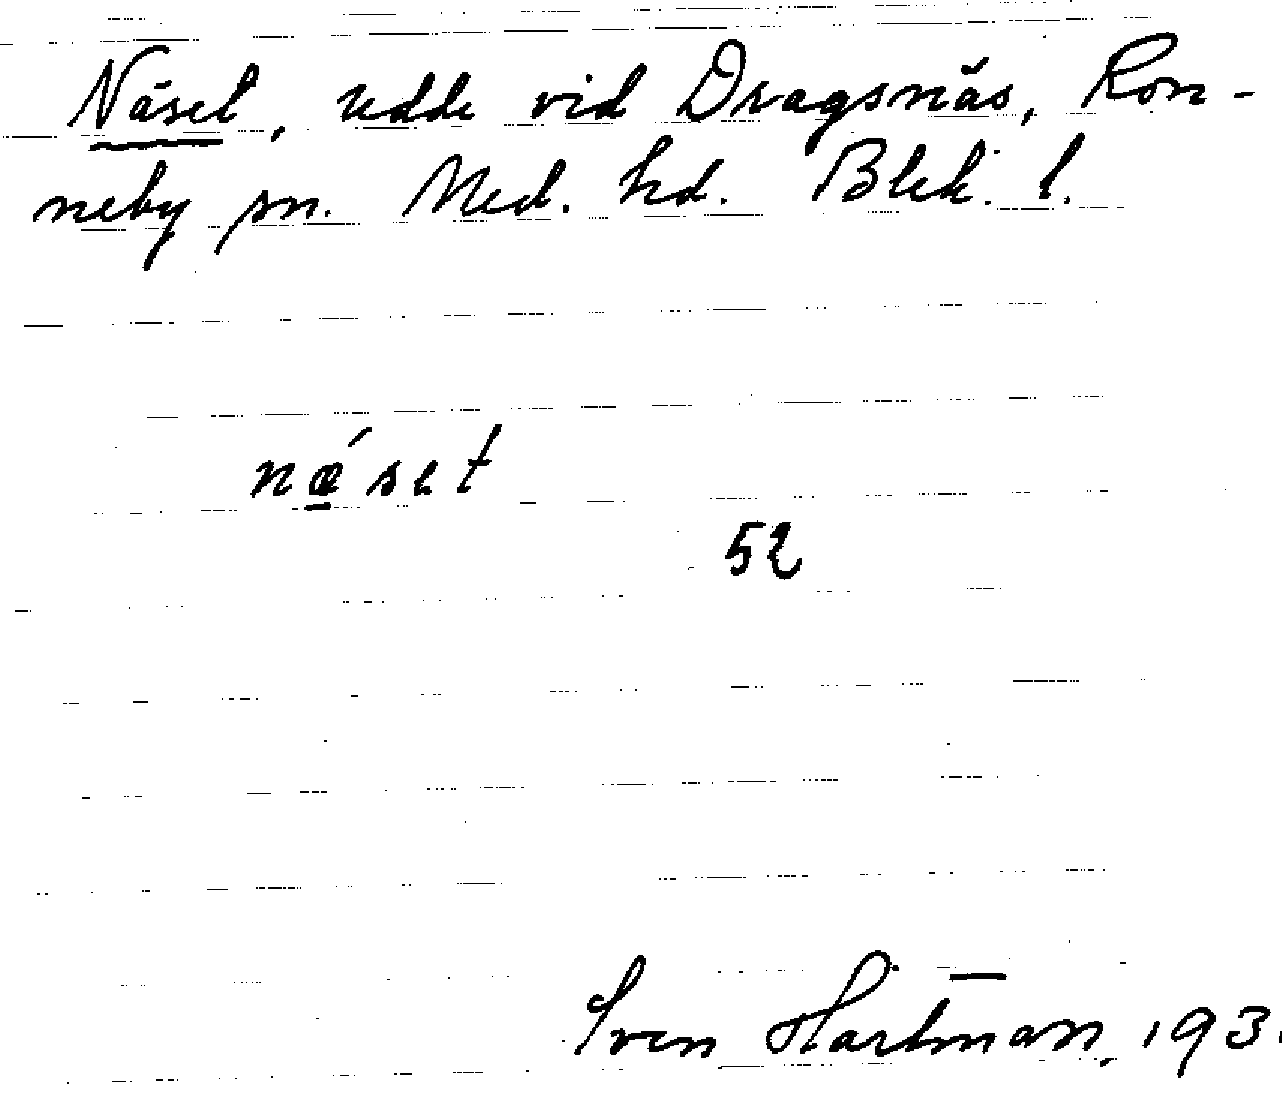 Näset, udde vid Dragsnäs, Ron-
neby sn. Med. hd. Blek. l.
nǽ̱set
52
Sven Hartman, 193